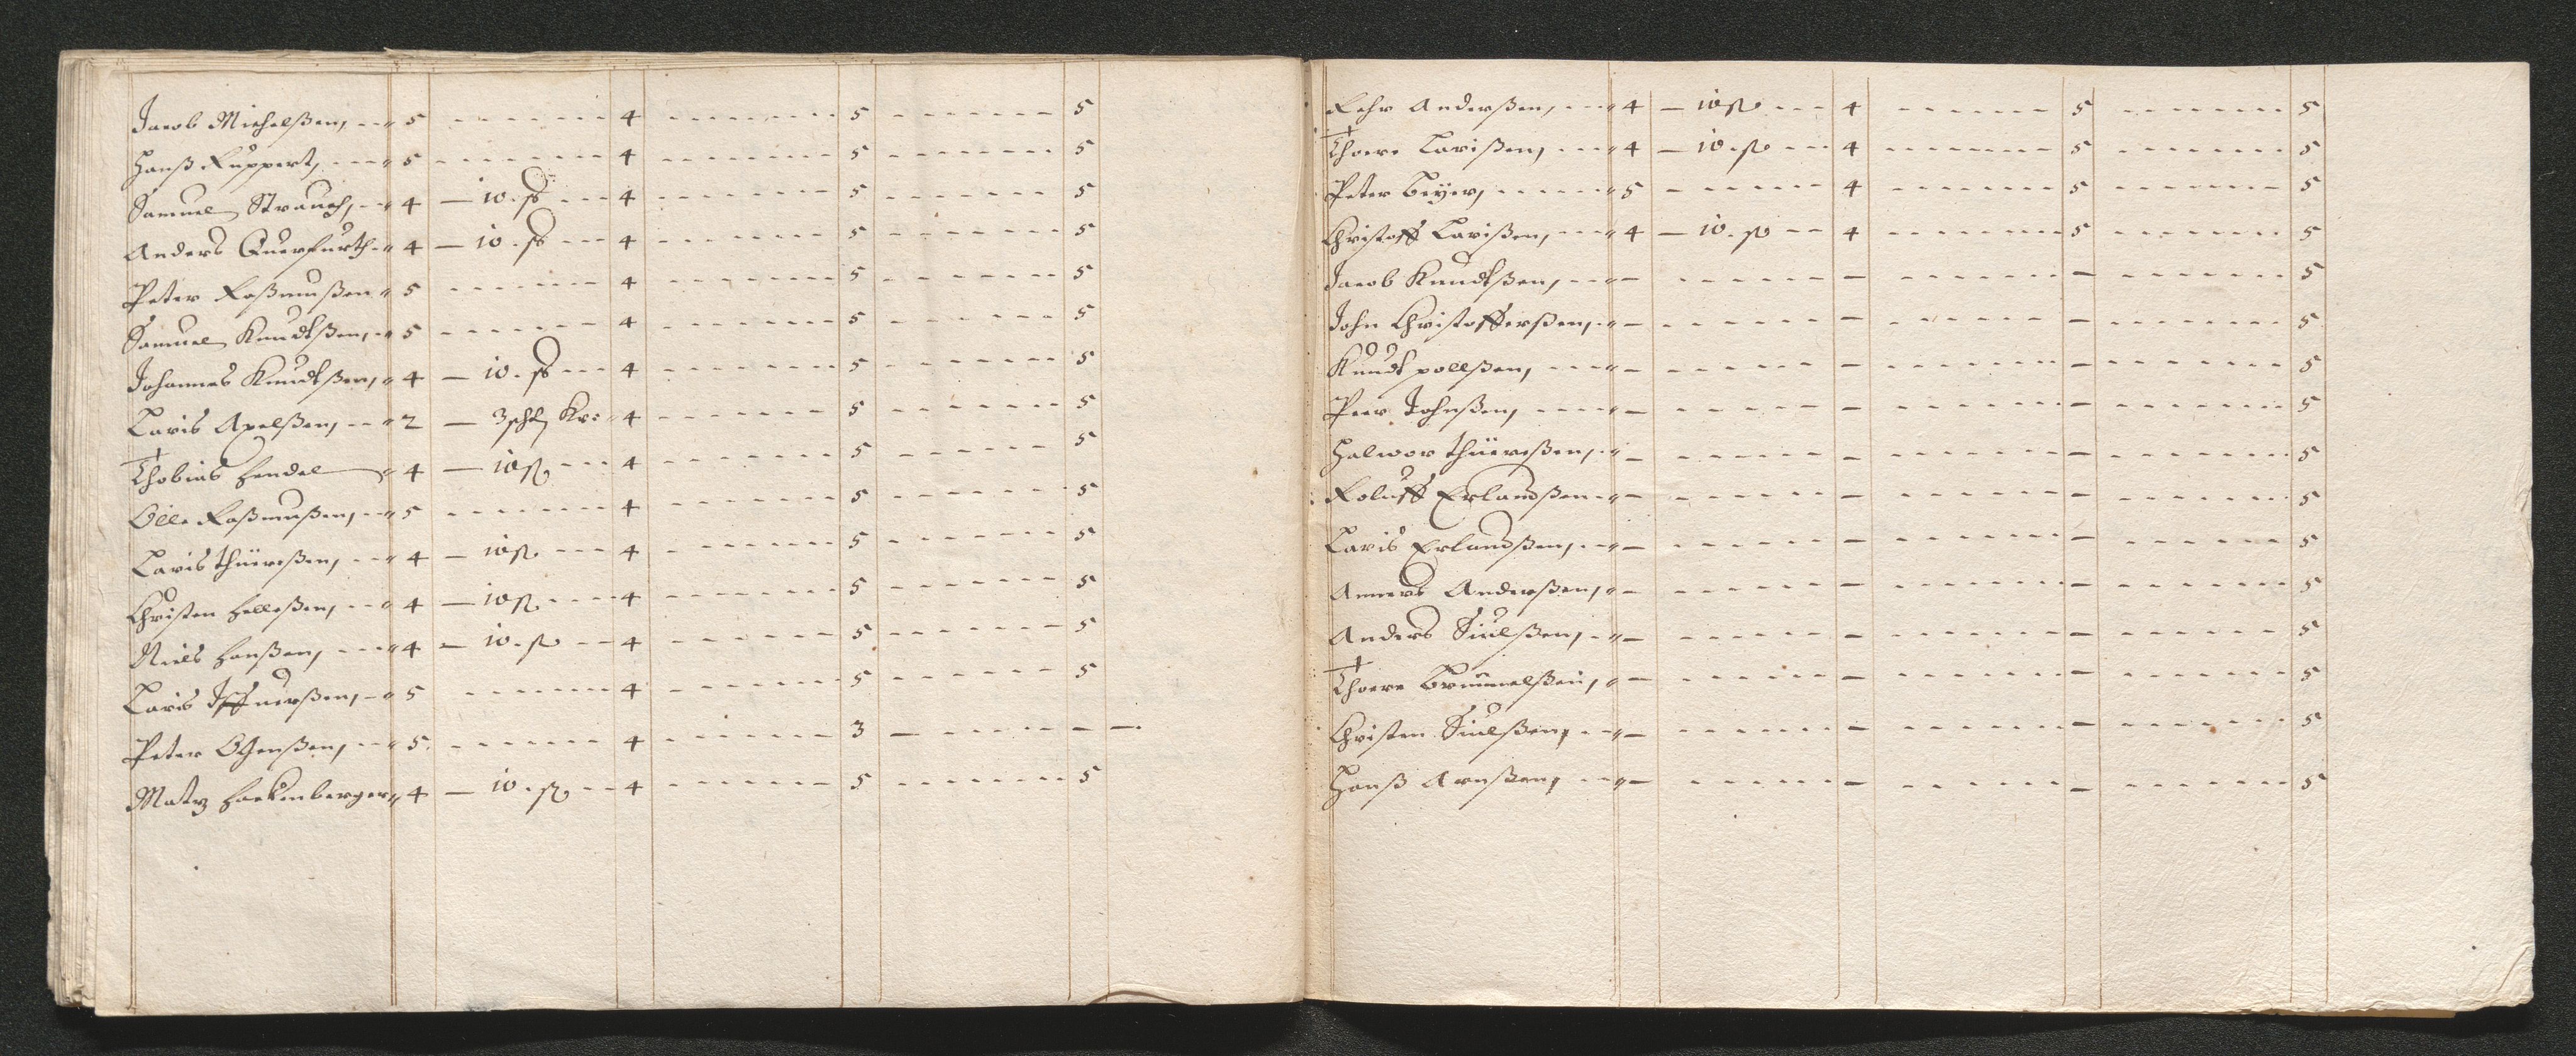 Jacob Michelßen, 5 4 5 5
Hanß Ruppert, 5 4 5 5
Samuel Strauch, 4 — 10. ß 4 5 5
Anders Querfurth 4 — 10. ß 4 5 5
Peter Raßmußen 5 4 5 5
Samuel Knudtßen, 5 4 5 5
Johannes Knudtßen, 4 — 10. ß 4 5 5
Laris Axelßen, 2 — 3 4 5 5
Thobias Hendel 4 — 10 ß 4 5 5
Olle Raßmußen, 5 4 5 5
Laris Thüerßen, 4 — 10 ß 4 5 5
Christen Helleßen, 4 — 10 ß 4 5 5
Niels Hanßen, 4 — 10. ß 4 5 5
Laris 5 4 5 5
Peter Ogenßen, 5. 4 3 — — —
Matz Hackenberger, 4 — 10. ß 4 5 5
Rehr Anderßen, 4 — 10 ß 4 5 5
Thoere Larißen, 4 — 10. ß 4 5 5
Peter Beyer, 5 4 5 5
Christoff Larißen, 4 — 10. ß 4 5 5
Jacob Knudtßen, — — — 5
John Christofferßen, — — — 5
Knudt pollßen, — — — 5
Peer Johnßen, — — — 5
Halwor Thüerßen, — — — 5
Roluff Erlandßen — — — 5
Laris Erlandßen, — — — 5
Anners Anderßen, — — — 5
Anders Siulßen, — — — 5
Thoere Brummelßen, — — — 5
Christen Siulßen, — — — 5
Hanß Arnßen, — — — 5